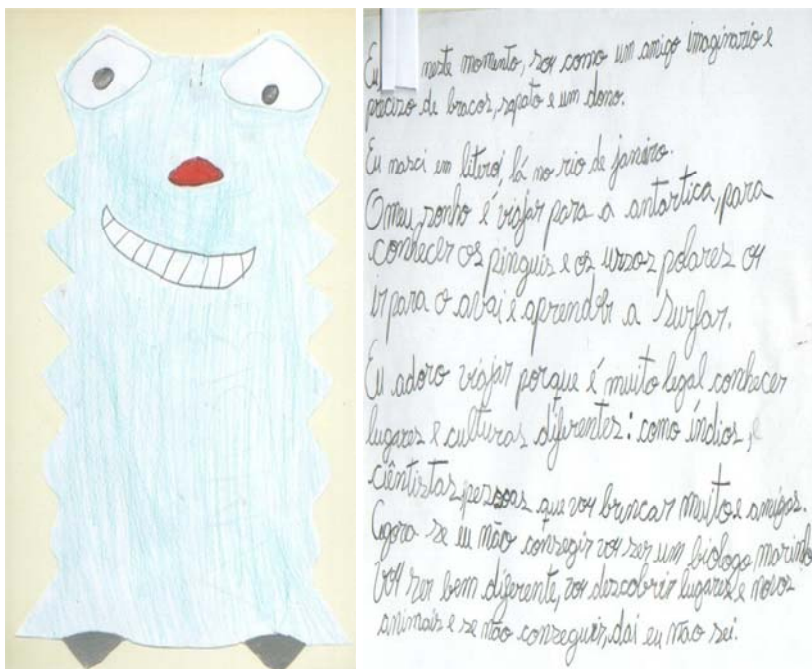 Eu neste momento, soy como um amigo imaginario e
precizo de bracos, sapato e um dono.
Eu nasci em literoi lá no rio de janeiro.
O meu sonho é viajar para a antartica, para
conhecer os pinguis e os urzoz polares oy
ir para o avai e aprender a surfar.
Eu adoro viajar porque é muito legal conhecer
lugares e culturas diferentes: como índios, e
ciêntiztas, pezzoas que voy brincar muito e amigas.
Agora se eu não consegir voy ser um biologo marinho
voy ser bem diferente, voy descobrir lugares e novos
animais e se não conzeguir, dai eu não sei.